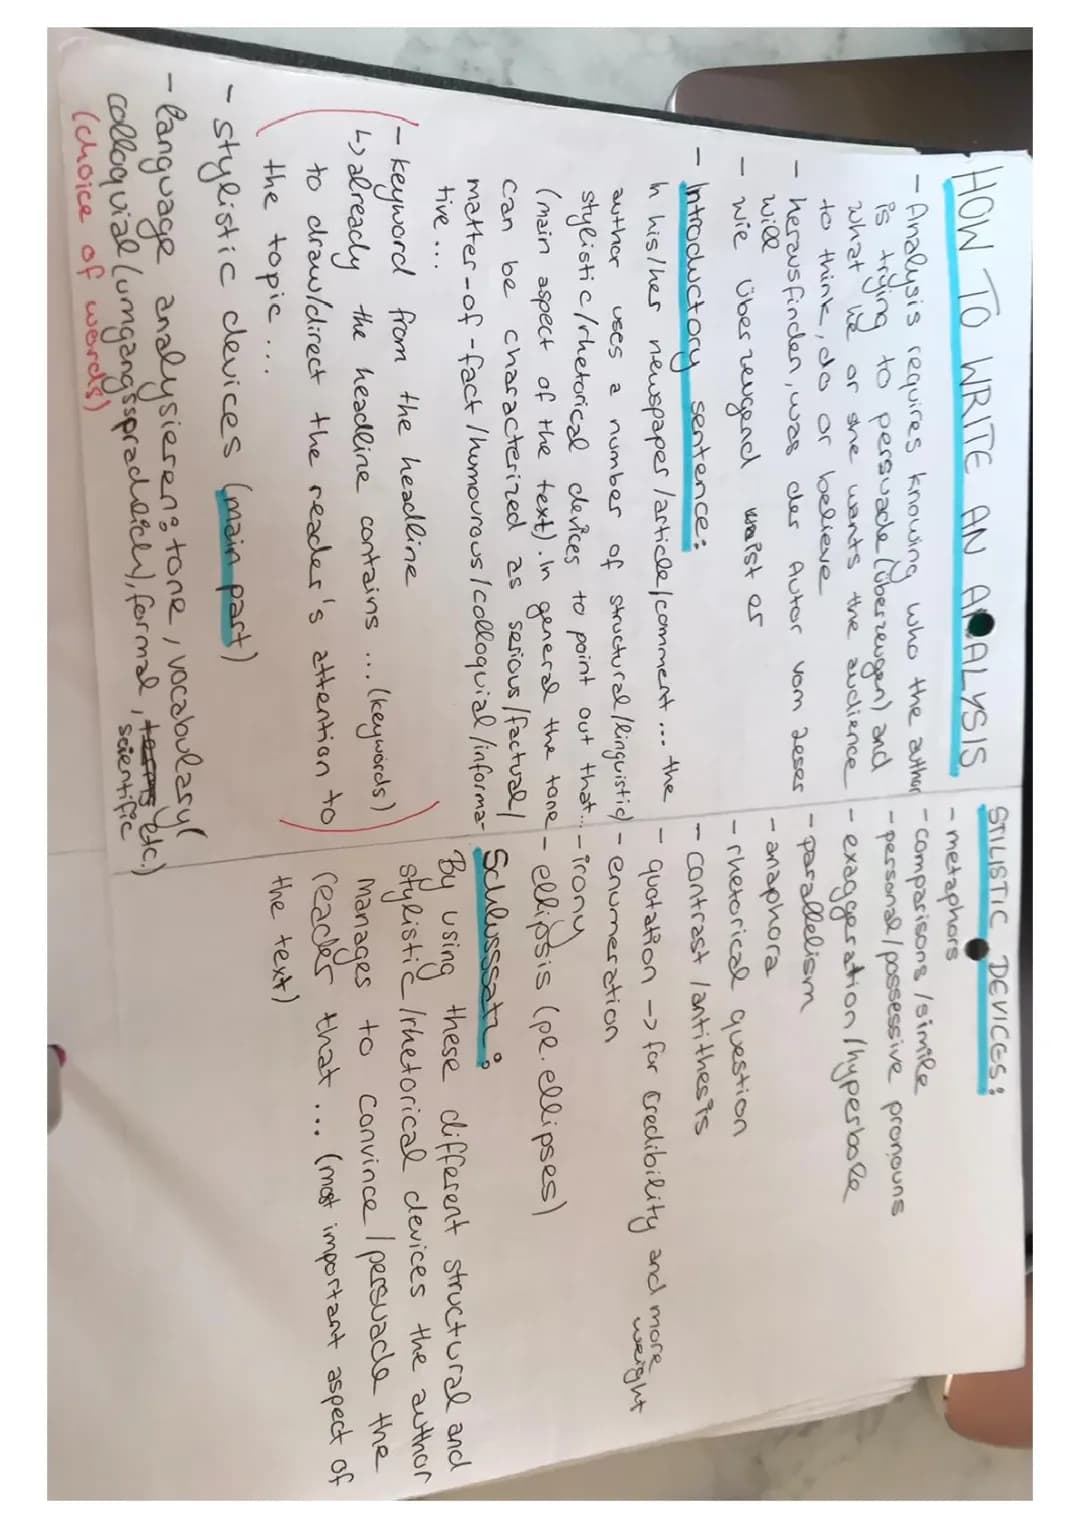 HOW TO WRITE AN ANALYSIS
- Analysis requires knowing who the author
is trying to persuade (überzeugen) and
what he or she wants the audience
to think, do or believe
- herausfinden, was der Autor vom Leser
will
- wie überzeugend waist er
- Introductory sentence:
In his/her newspaper/article/comment... the
author uses a number of structural/linguistic/
stylistic/rhetorical devices to point out that...
(main aspect of the text). In general the tone
can be characterized as serious/factual/
matter-of-fact/humourous/colloquial/informa-
tive...
- keyword from the headline
↳ already the headline contains ... (keywords)
to draw/direct the reader's attention to
the topic ...
- stylistic devices (main part)
- language analysieren: tone, vocabulary (
colloquial (umgangssprachlich), formal, terms etc.)
scientific
(choice of words)
STILISTIC DEVICES:
- metaphors
- comparisons / simile
- personal/possessive pronouns
- exaggeration/hyperbole
- parallelism
- anaphora
- rhetorical question
- contrast/antithesis
- quotation -> for credibility and more
weight
- enumeration
- irony
- ellipsis (pl. ellipses)
Schlusssatz:
By using these different structural and
stylistic/rhetorical devices the author
manages to convince/persuade the
reader that ... (most important aspect of
the text)